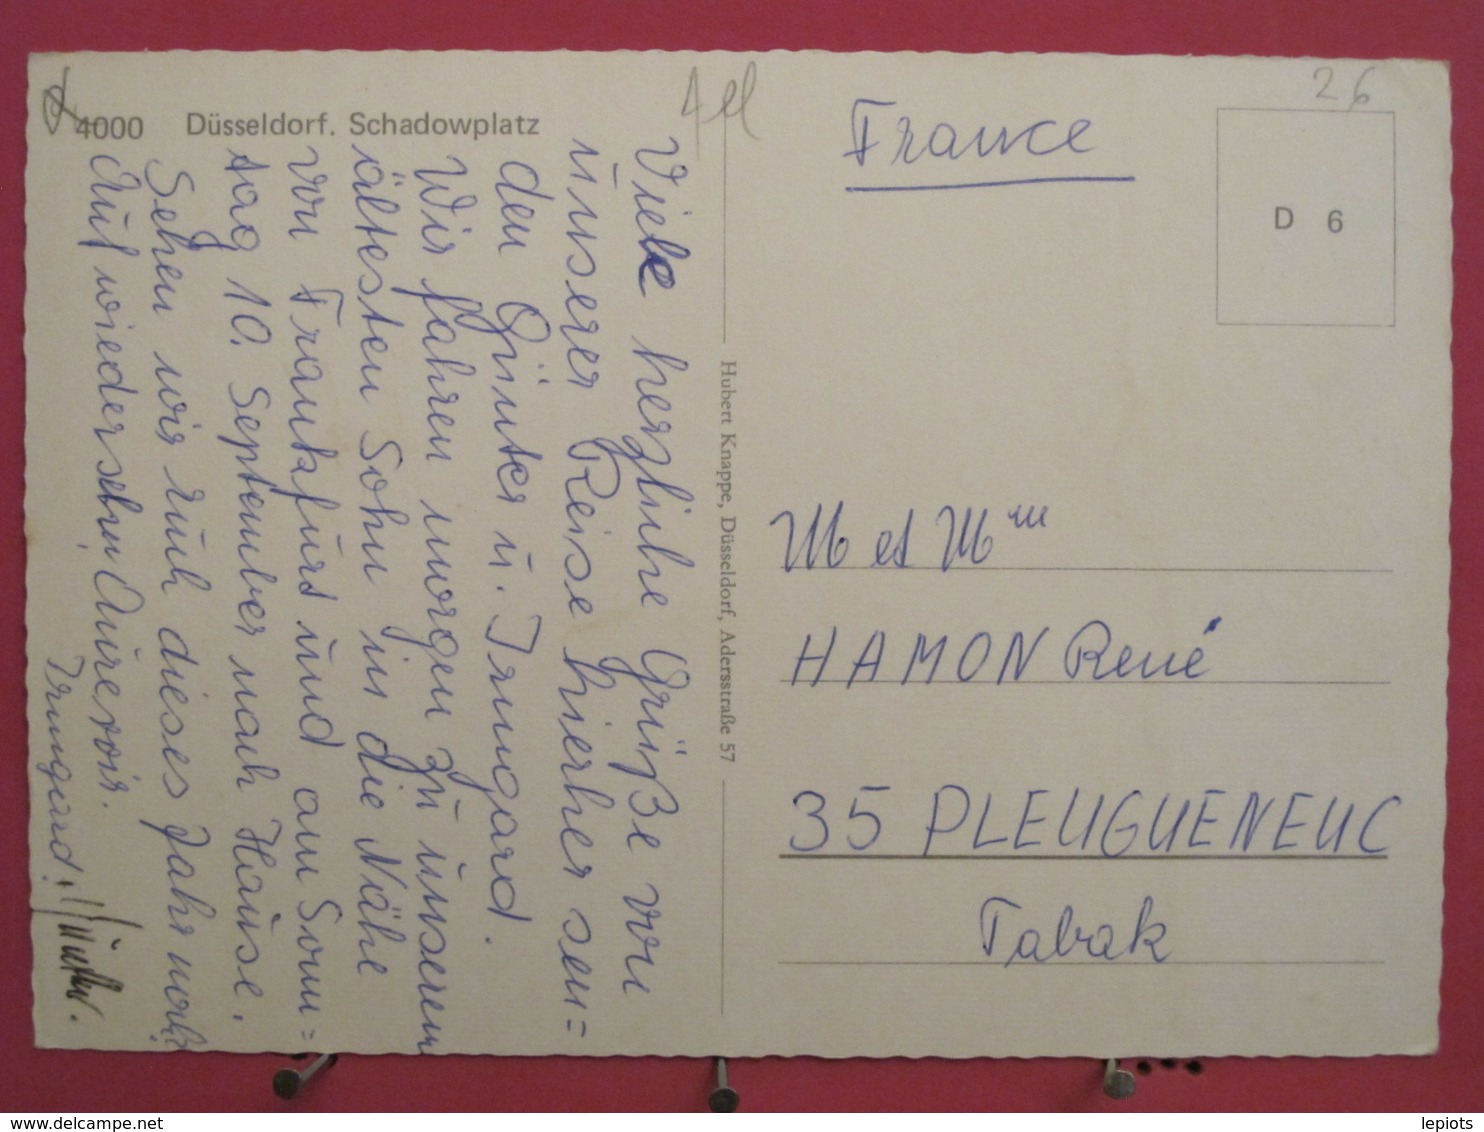 4000 Düsseldorf. Schadowplatz
Viele herzliche Grüße von
unserer Reise hierher sen=
den Günter u. Irmgard.
Wir fahren morgen zu unserem
ältesten Sohn in die Nähe
von Frankfurt und am Sonn=
tag 10. September nach Hause.
Sehen wir Euch dieses Jahr noch?
Auf wiedersehen, Aurevoir.
Irmgard!
Hubert Knappe, Düsseldorf, Adersstraße 57
26
France
D 6
M et Mme
HAMON René
35 PLEUGUENEUC
Tabak
lepiots